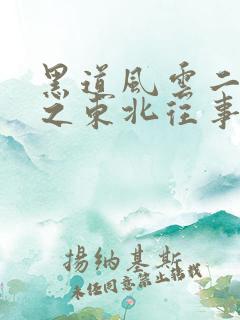 黑道風雲二
之東北往事
揚納基斯
未经同意禁止转载